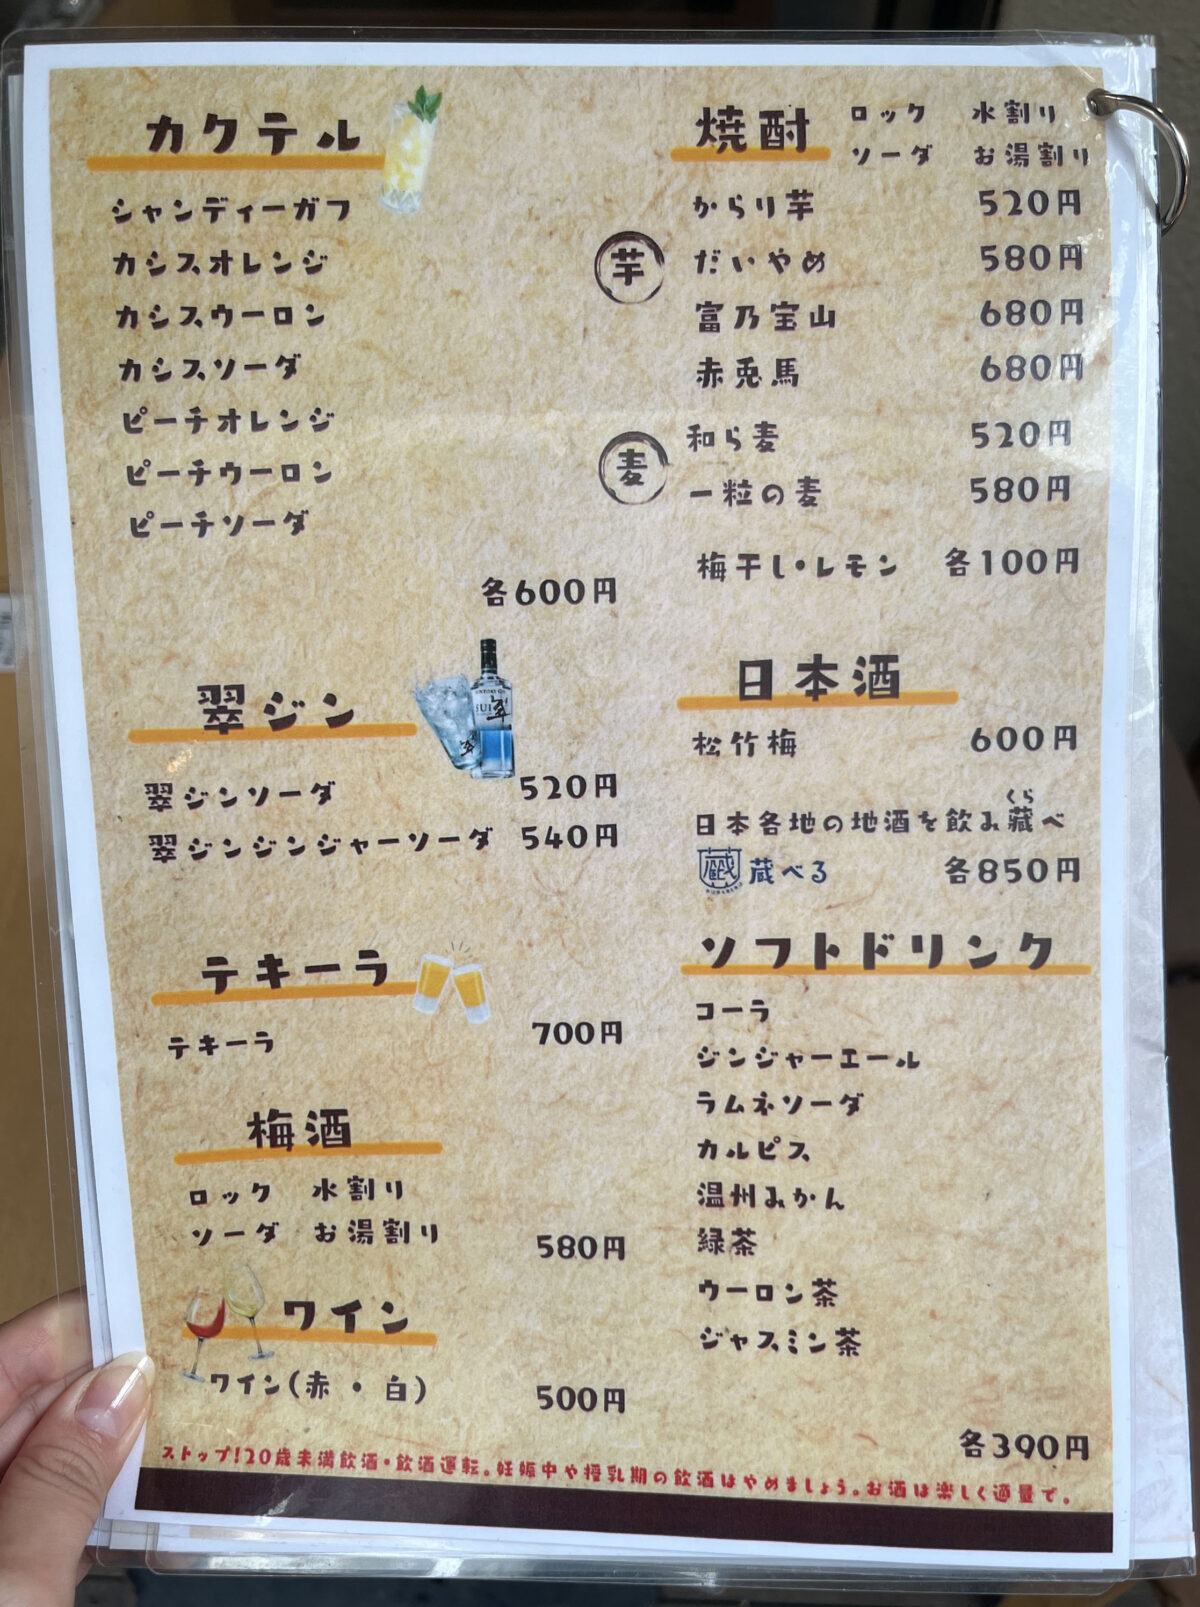 カクテル
シャンディーガフ
カシスオレンジ
カシスウーロン
カシスソーダ
ピーチオレンジ
ピーチウーロン
ピーチソーダ
各600円
翠ジン
SUI 翠
翠
翠ジンソーダ 520円
翠ジンジンジャーソーダ 540円
テキーラ
テキーラ 700円
梅酒
ロック 水割り
ソーダ お湯割り 580円
ワイン
ワイン(赤・白) 500円
焼酎 ロック 水割り
ソーダ お湯割り
芋
からり芋 520円
だいやめ 580円
富乃宝山 680円
赤兎馬 680円
麦
和ら麦 520円
一粒の麦 580円
梅干し・レモン 各100円
日本酒
松竹梅 600円
くら
日本各地の地酒を飲み藏べ
蔵 蔵べる 各850円
ソフトドリンク
コーラ
ジンジャーエール
ラムネソーダ
カルピス
温州みかん
緑茶
ウーロン茶
ジャスミン茶
各390円
ストップ!20歳未満飲酒・飲酒運転。妊娠中や授乳期の飲酒はやめましょう。お酒は楽しく適量で。